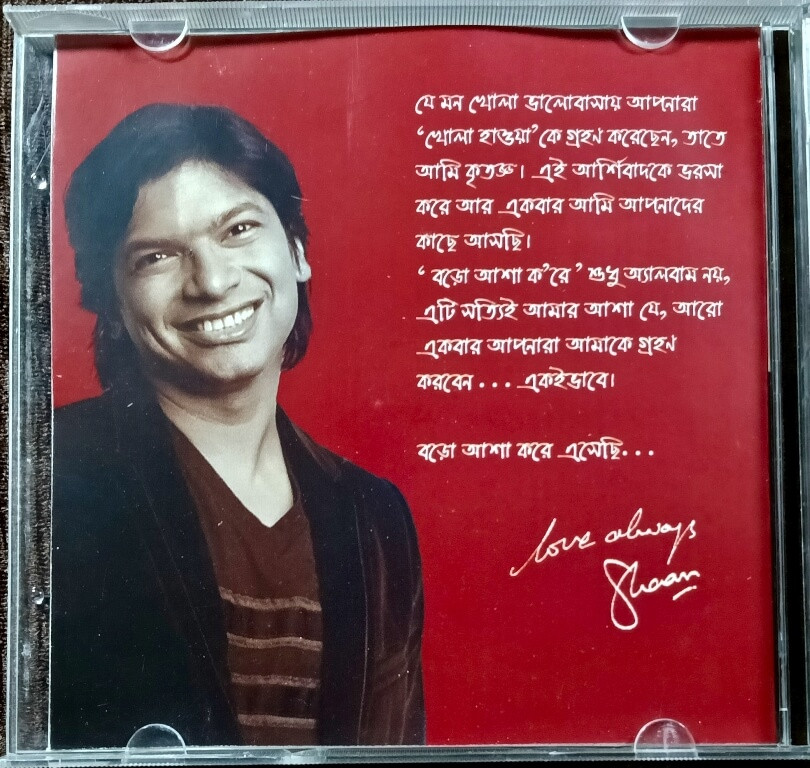 যে মন খোলা ভালোবাসায় আপনারা
‘খোলা হাওয়া’কে গ্রহণ করেছেন, তাতে
আমি কৃতজ্ঞ। এই আর্শিবাদকে ভরসা
করে আর একবার আমি আপনাদের
কাছে আসছি।
‘ বড়ো আশা ক’রে ’ শুধু অ্যালবাম নয়,
এটি সত্যিই আমার আশা যে, আরো
একবার আপনারা আমাকে গ্রহণ
করবেন . . . একইভাবে।
বড়ো আশা করে এসেছি . . .
love always
Shaan